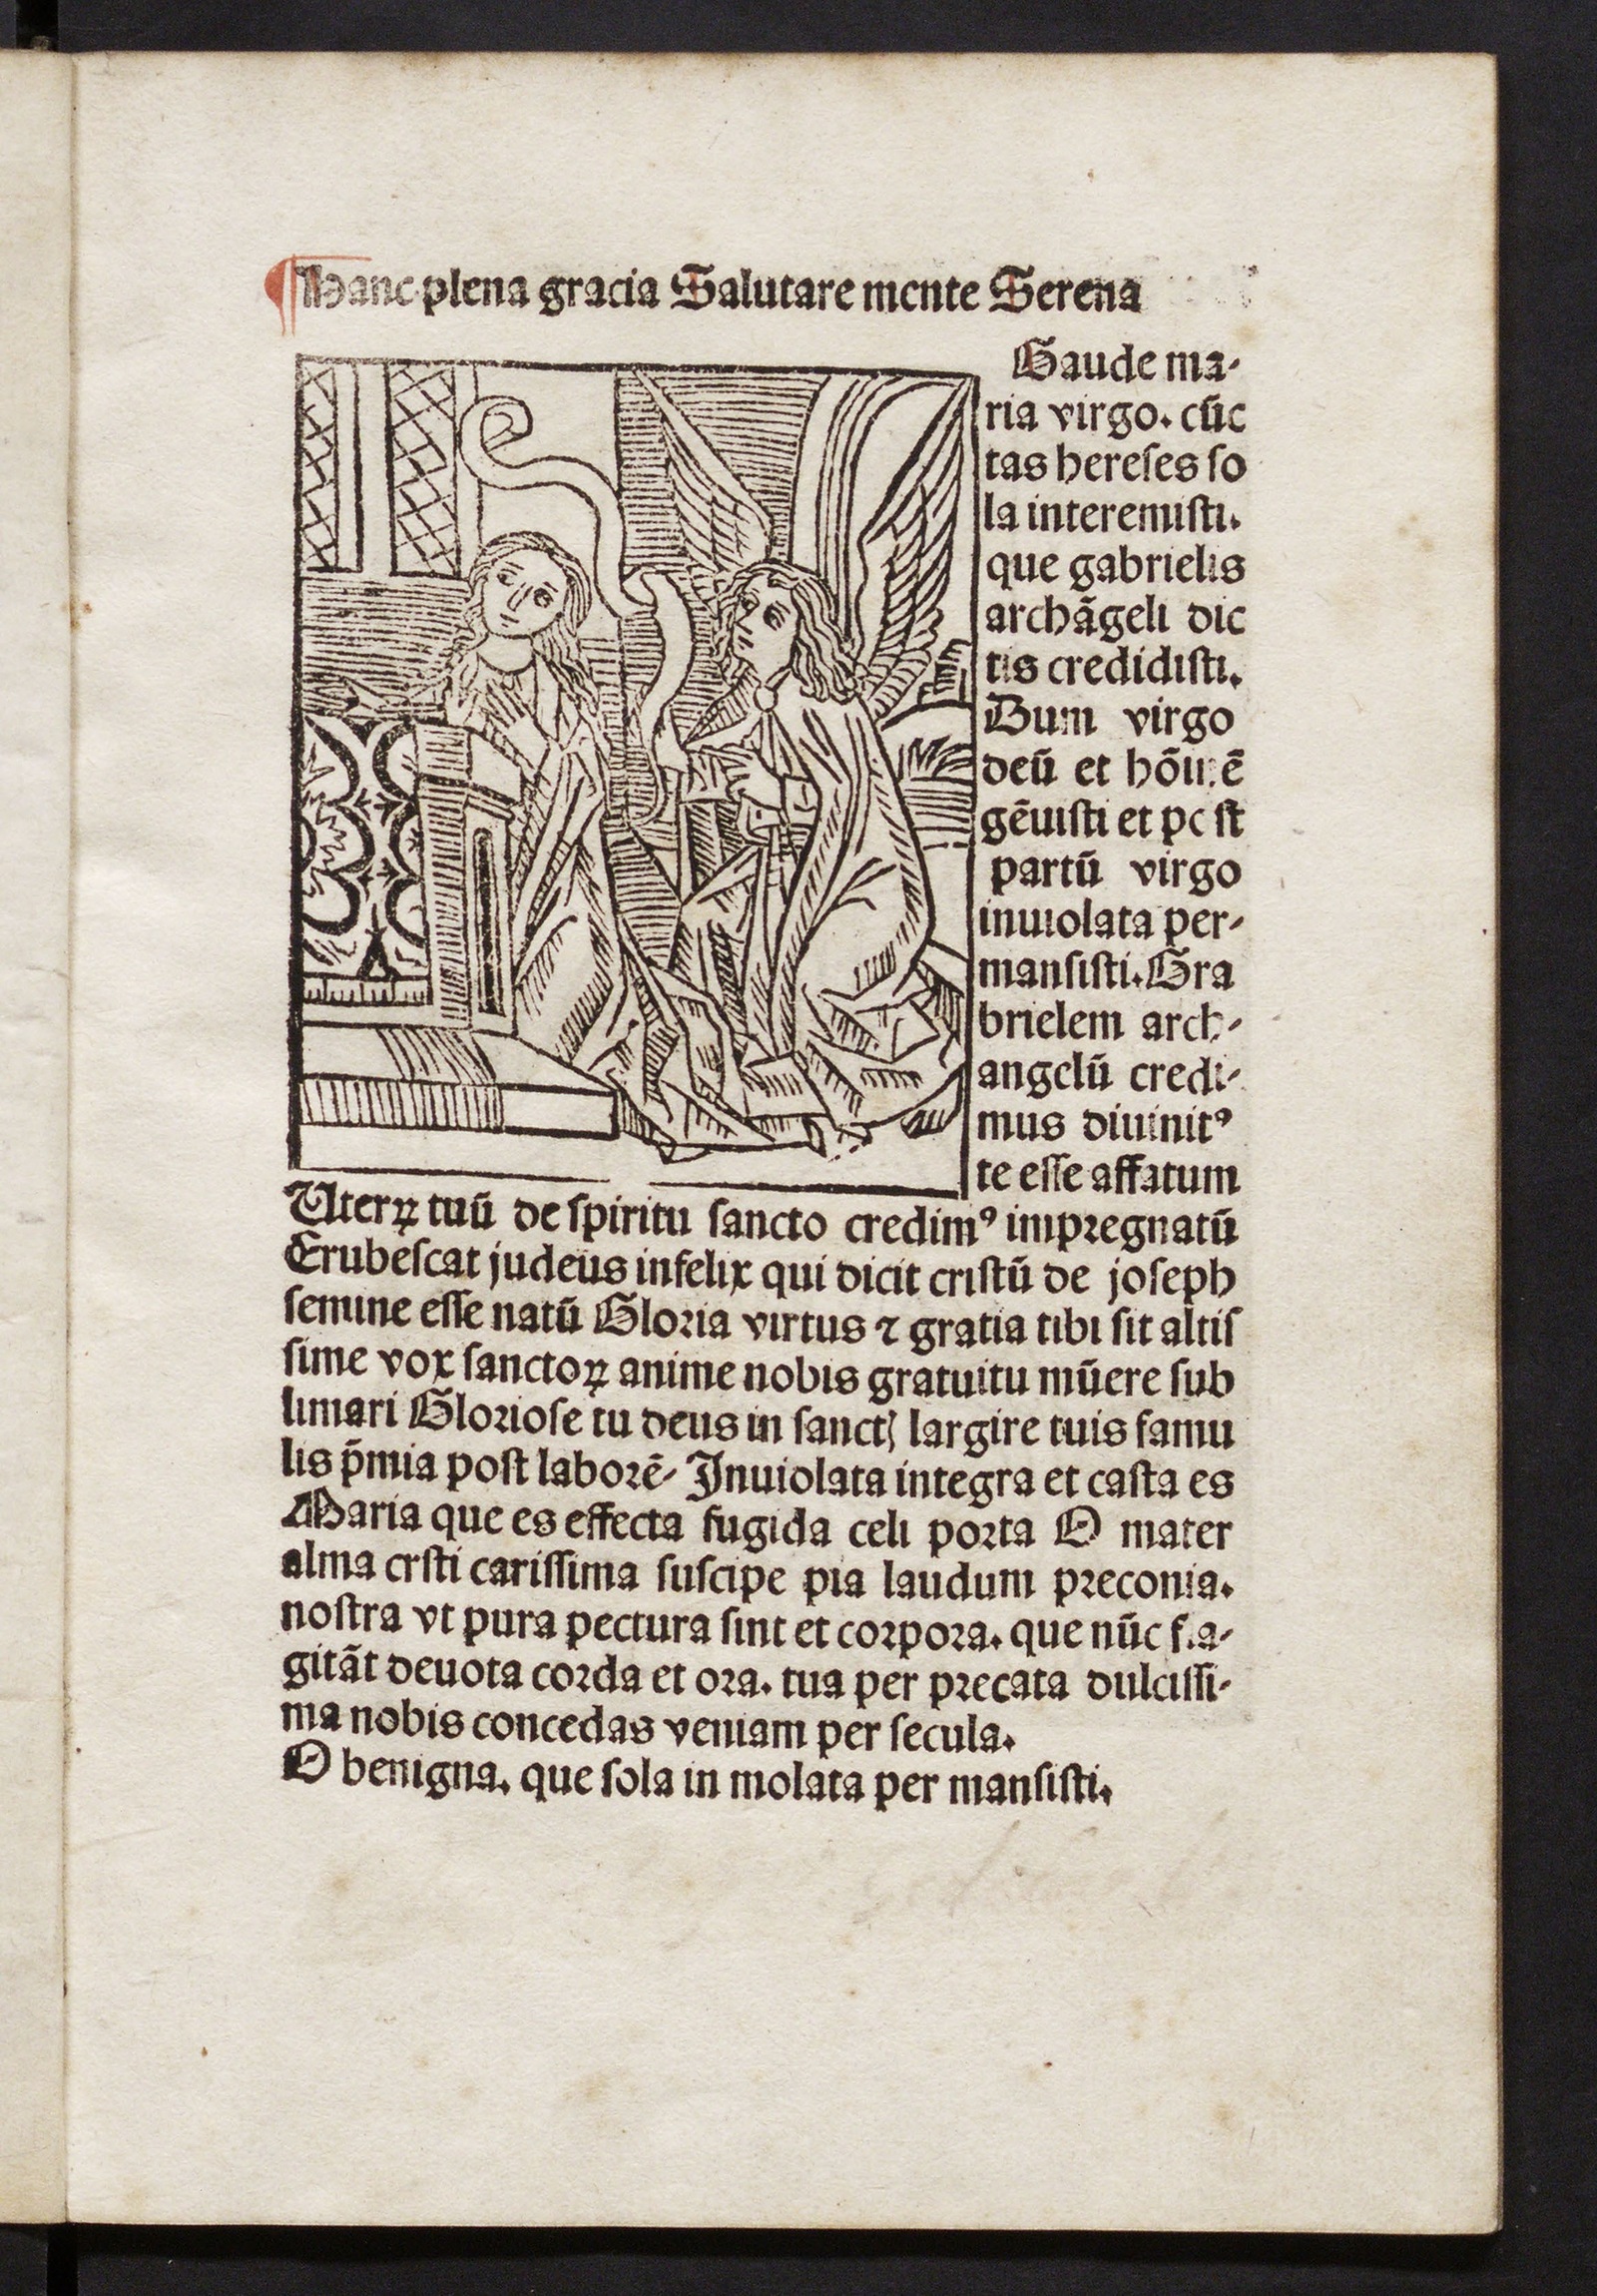 ¶ Hanc plena gracia Salutare mente Serena
Gaude ma-
ria virgo. cūc
tas hereſes ſo
la interemiſti.
que gabrielis
archāgeli dic
tis credidiſti.
Dum virgo
deū et hōinē
gēuiſti et poſt
partū virgo
inuiolata per-
manſiſti. Gra
brielem arch-
angelū credi-
mus diuinitꝰ
te eſſe affatum
Uterꝝ tuū de ſpiritu ſancto credimꝰ impꝛegnatū
Erubeſcat judeus infelix qui dicit criſtū de joſeph
ſemine eſſe natū Gloꝛia virtus ⁊ gratia tibi ſit altiſ
ſime vox ſanctoꝝ anime nobis gratuitu mūere ſub
limari Gloꝛioſe tu deus in ſanctꝭ largire tuis famu
lis p̄mia poſt laboꝛē- Inuiolata integra et caſta es
Maria que es effecta fugida celi poꝛta O mater
alma crſti cariſſima ſuſcipe pia laudum pꝛeconia.
noſtra vt pura pectura ſint et coꝛpoꝛa. que nūc fla-
gitāt deuota coꝛda et oꝛa. tua per pꝛecata dulciſſi-
ma nobis concedas veniam per ſecula.
O benigna. que ſola in molata per manſiſti.